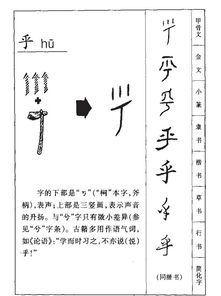 乎 hū
字的下部是“丂”(“柯”本字,斧
柄),表声;上部是三竖画,表示声音
的升扬。与“兮”字只有微小差异(参
见“兮”字条)。古籍多用作语气词,
如《论语》:“学而时习之,不亦说(悦)
乎!”
甲骨文
金文
小篆
隶书
楷书
草书
行书
简化字
乎
乎
乎
乎
乎
乎
乎
(同楷书)